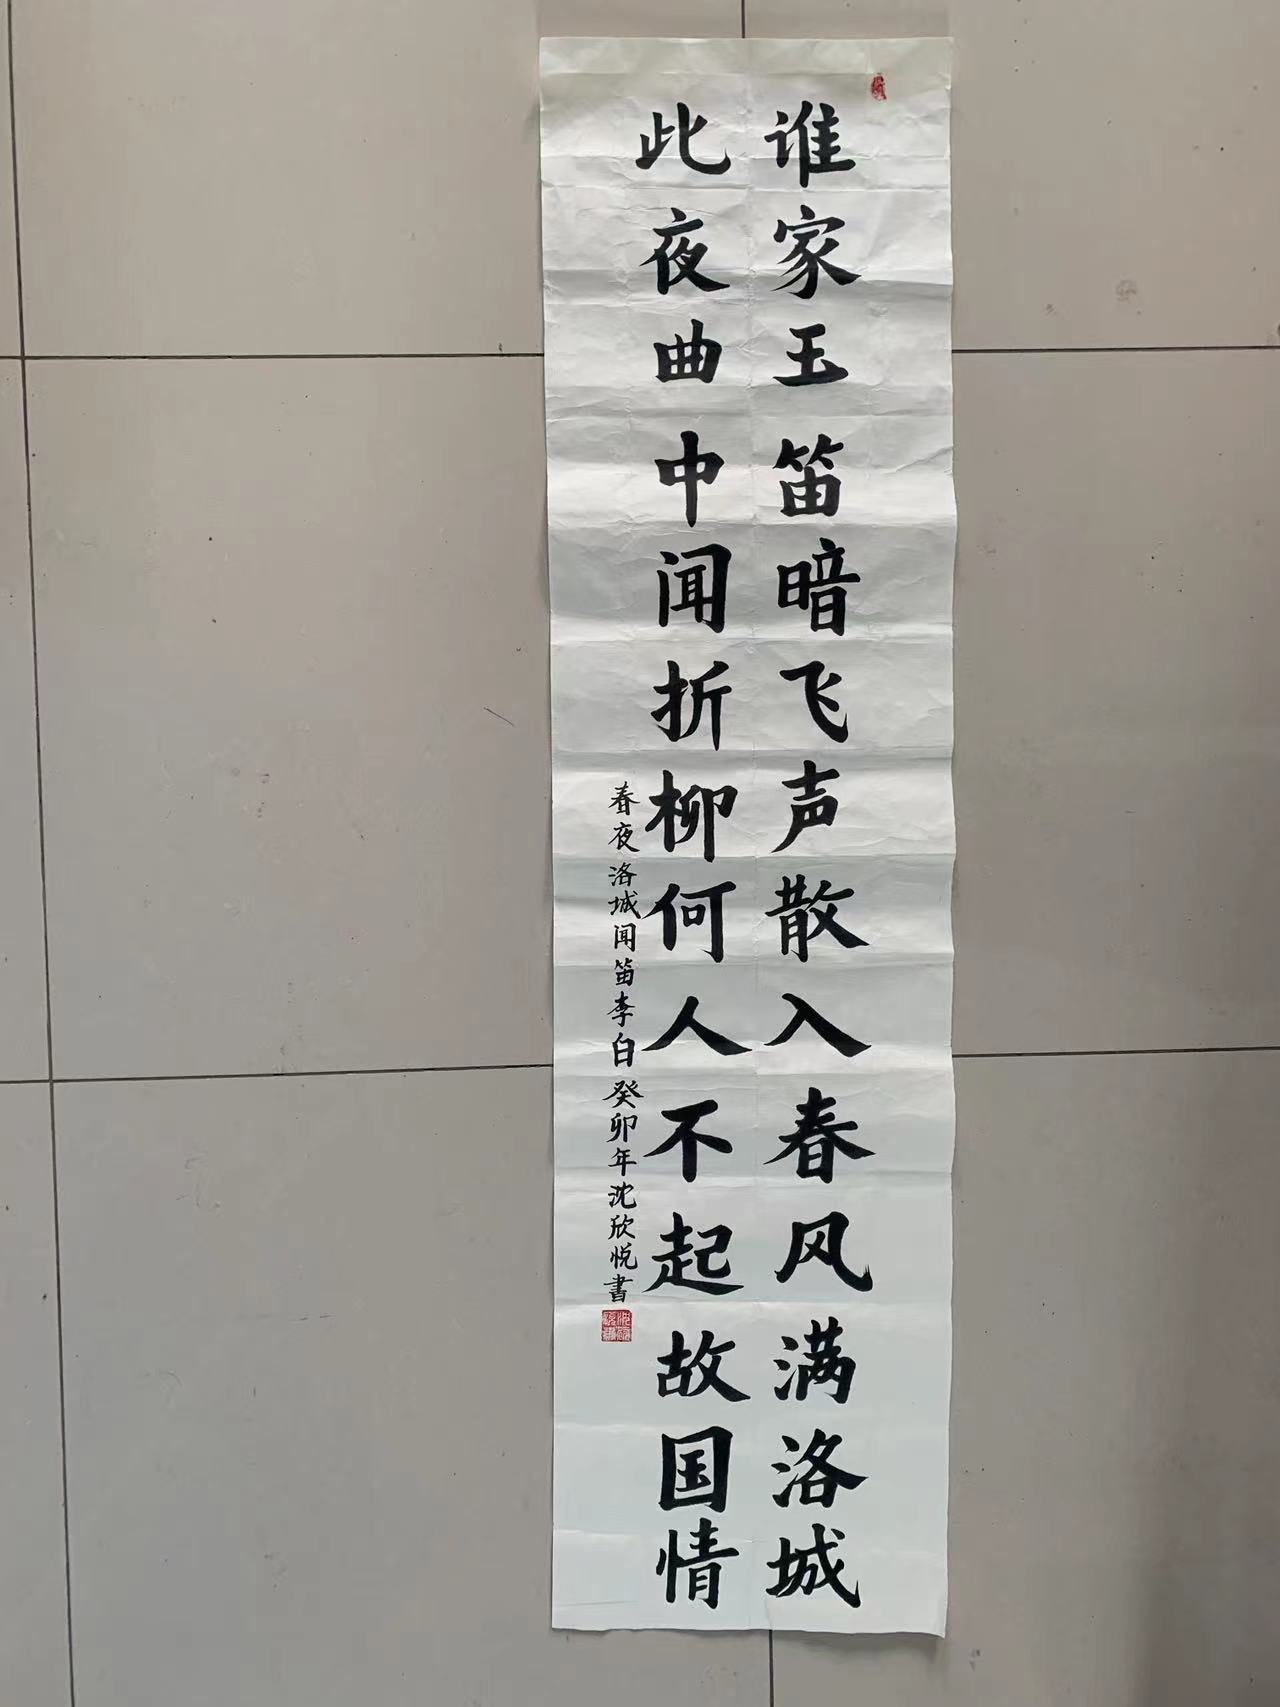 谁家玉笛暗飞声散入春风满洛城
此夜曲中闻折柳何人不起故国情
春夜洛城闻笛李白癸卯年沈欣悦書